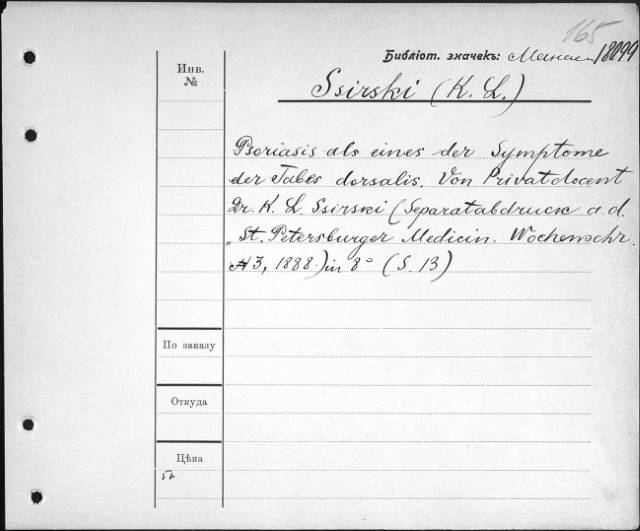 165
Библіот. значекъ: 18099
Инв. №
Ssirski (K. L.)
Psoriasis als eines der Symptome
der Tabes dorsalis. Von Privatdocent
Dr. K. L. Ssirski (Separatabdruck a. d.
„St. Petersburger Medicin. Wochenschr.
№ 3, 1888.) in 8° (S. 13)
По заказу
Откуда
Цѣна